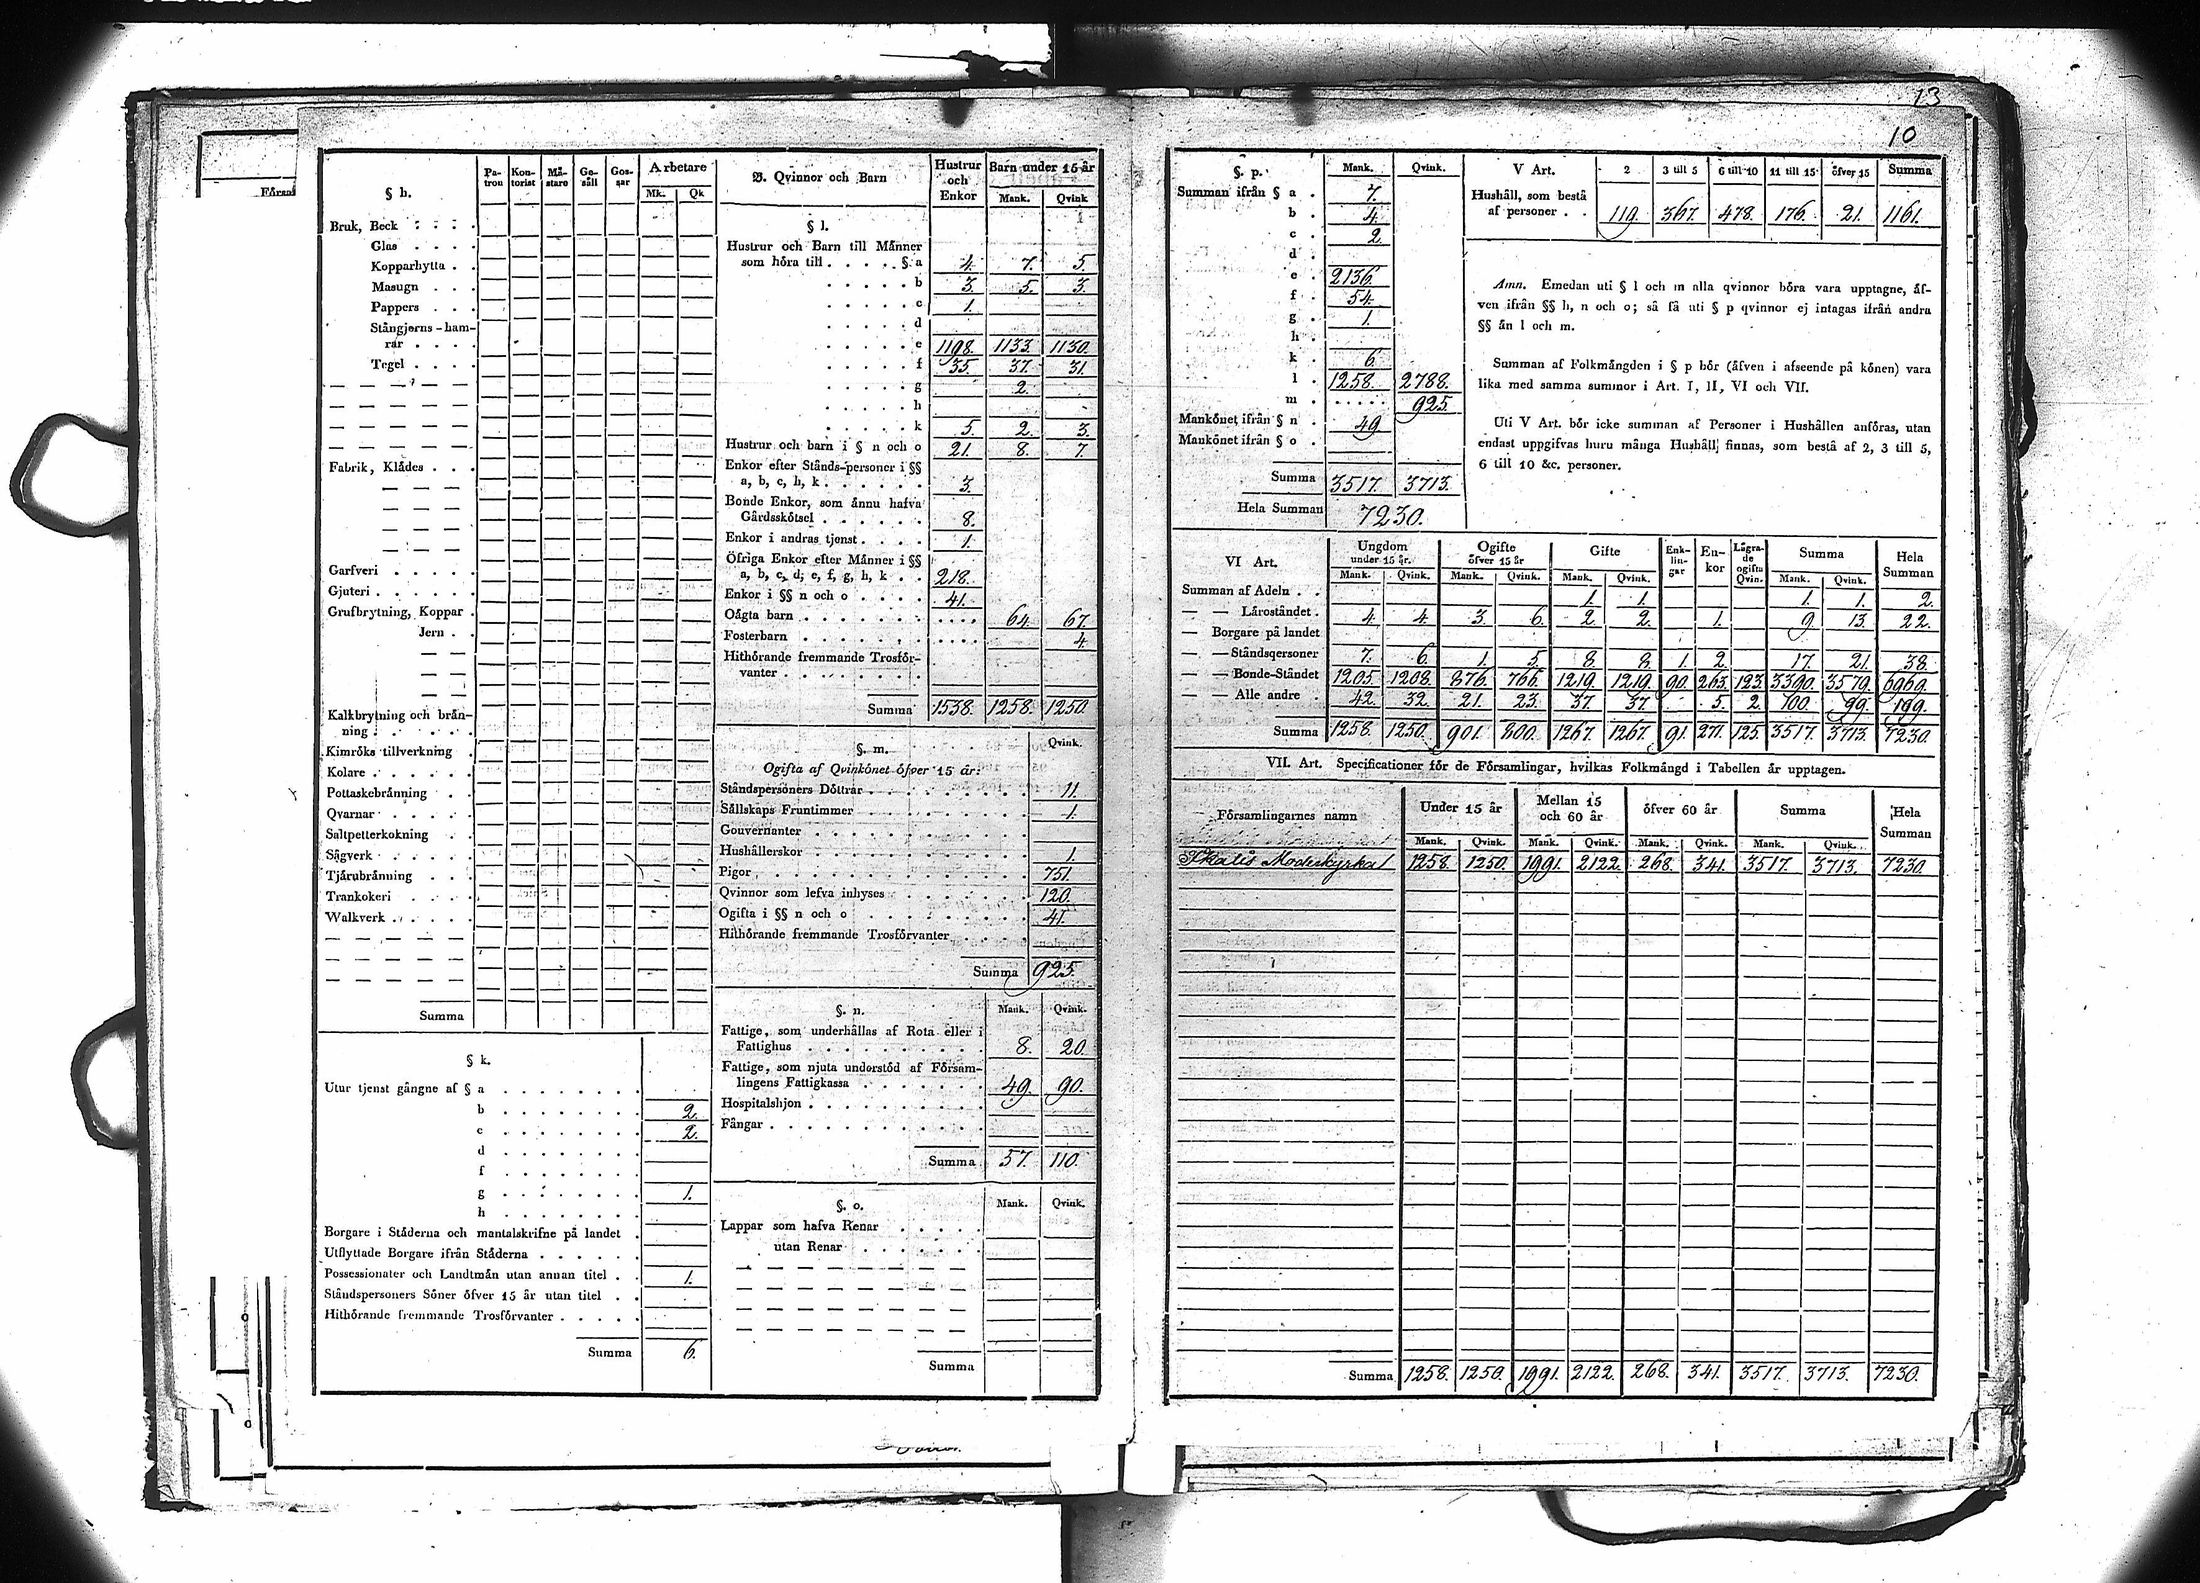 13
10
Församl
§ h.
Pa-tron Kon-torist Mä-stare Ge-säll Gos-sar Arbetare
Mk. Qk
Bruk, Beck . . . .
Glas . . . .
Kopparhytta . .
Masugn . . .
Pappers . . .
Stångjerns-ham-
rar . . . .
Tegel . . . .
Fabrik, Klädes . . .
Garfveri . . . . .
Gjuteri . . . . . .
Grufbrytning, Koppar .
Jern . .
Kalkbrytning och brän-
ning . . . . . .
Kimröks tillverkning .
Kolare . . . . . .
Pottaskebränning . .
Qvarnar . . . . .
Saltpetterkokning . .
Sågverk . . . . .
Tjärubränning . . .
Trankokeri . . . .
Walkverk . . . . .
Summa
§ k.
Utur tjenst gångne af § a . . . . . . .
b . . . . . . . 2.
c . . . . . . . 2.
d . . . . . . .
f . . . . . . .
g . . . . . . . 1.
h . . . . . . .
Borgare i Städerna och mantalskrifne på landet .
Utflyttade Borgare ifrån Städerna . . . . .
Possessionater och Landtmän utan annan titel . . 1.
Ståndspersoners Söner öfver 15 år utan titel . .
Hithörande fremmande Trosförvanter . . . . .
Summa 6.
B. Qvinnor och Barn
Hustrur och Enkor Barn under 15 år
Mank. Qvink
§ l.
Hustrur och Barn till Männer
som höra till . . . . . § a 4. 7. 5.
. . . . . b 3. 5. 3.
. . . . . c 1.
. . . . . d
. . . . . e 1198. 1133. 1130.
. . . . . f 35. 37. 31.
. . . . . g 2.
. . . . . h
. . . . . k 5. 2. 3.
Hustrur och barn i § n och o 21. 8. 7.
Enkor efter Stånds-personer i §§
a, b, c, h, k . . . . . . 3.
Bonde Enkor, som ännu hafva
Gårdsskötsel . . . . . . 8.
Enkor i andras tjenst . . . . 1.
Öfriga Enkor efter Männer i §§
a, b, c, d, e, f, g, h, k . . 218.
Enkor i §§ n och o . . . . 41.
Oägta barn . . . . . . . . . . . 64. 67.
Fosterbarn . . . . . . . . . . . 4.
Hithörande fremmande Trosför-
vanter . . . . . . . .
Summa 1538. 1258. 1250.
§. m. Qvink.
Ogifta af Qvinkönet öfver 15 år:
Ståndspersoners Döttrar . . . . . . . . 11.
Sällskaps Fruntimmer . . . . . . . . . 1.
Gouvernanter . . . . . . . . . . .
Hushållerskor . . . . . . . . . . . 1.
Pigor . . . . . . . . . . . . . 751.
Qvinnor som lefva inhyses . . . . . . . 120.
Ogifta i §§ n och o . . . . . . . . . 41.
Hithörande fremmande Trosförvanter . . . .
Summa 925.
§. n. Mank. Qvink.
Fattige, som underhållas af Rota eller i
Fattighus . . . . . . . . . . 8. 20.
Fattige, som njuta understöd af Försam-
lingens Fattigkassa . . . . . . . 49. 90.
Hospitalshjon . . . . . . . . . .
Fångar . . . . . . . . . . . .
Summa 57. 110.
§. o. Mank. Qvink.
Lappar som hafva Renar . . . . .
utan Renar . . . . . . .
Summa
§. p. Mank. Qvink.
Summan ifrån § a . 7.
b . 4.
c . 2.
d .
e . 2136.
f . 54.
g . 1.
h .
k . 6.
l . 1258. 2788.
m . . . . . . 925.
Mankönet ifrån § n . 49
Mankönet ifrån § o .
Summa 3517. 3713.
Hela Summan 7230.
V Art. 2 3 till 5 6 till 10 11 till 15 öfver 15 Summa
Hushåll, som bestå
af personer . . 119. 367. 478. 176. 21. 1161.
Anm. Emedan uti § l och m alla qvinnor böra vara upptagne, äf-
ven ifrån §§ h, n och o; så få uti § p qvinnor ej intagas ifrån andra
§§ än l och m.
Summan af Folkmängden i § p bör (äfven i afseende på könen) vara
lika med samma summor i Art. I, II, VI och VII.
Uti V Art. bör icke summan af Personer i Hushållen anföras, utan
endast uppgifvas huru många Hushåll finnas, som bestå af 2, 3 till 5,
6 till 10 &c. personer.
VI Art. Ungdom under 15 år. Ogifte öfver 15 år Gifte Enk-lin-gar En-kor Lägra-de ogifta Qvin. Summa Hela Summan
Mank. Qvink. Mank. Qvink. Mank. Qvink. Mank. Qvink.
Summan af Adeln . . 1. 1. 1. 1. 2.
— — Läroståndet . 4. 4. 3. 6. 2. 2. 1. 9. 13. 22.
— Borgare på landet
— — Ståndsqersoner 7. 6. 1. 5. 8. 8. 1. 2. 17. 21. 38.
— — Bonde-Ståndet 1205. 1208. 876. 766. 1219. 1219. 90. 263. 123. 3390. 3579. 6969.
— — Alle andre . 42. 32. 21. 23. 37. 37. 5. 2. 100. 99. 199.
Summa 1258. 1250. 901. 800. 1267. 1267. 91. 271. 125. 3517. 3713. 7230.
VII. Art. Specificationer för de Församlingar, hvilkas Folkmängd i Tabellen är upptagen.
Församlingarnes namn Under 15 år Mellan 15 och 60 år öfver 60 år Summa Hela Summan
Mank. Qvink. Mank. Qvink. Mank. Qvink. Mank. Qvink.
Moderkyrka 1258. 1250. 1991. 2122. 268. 341. 3517. 3713. 7230.
Summa 1258. 1250. 1991. 2122. 268. 341. 3517. 3713. 7230.